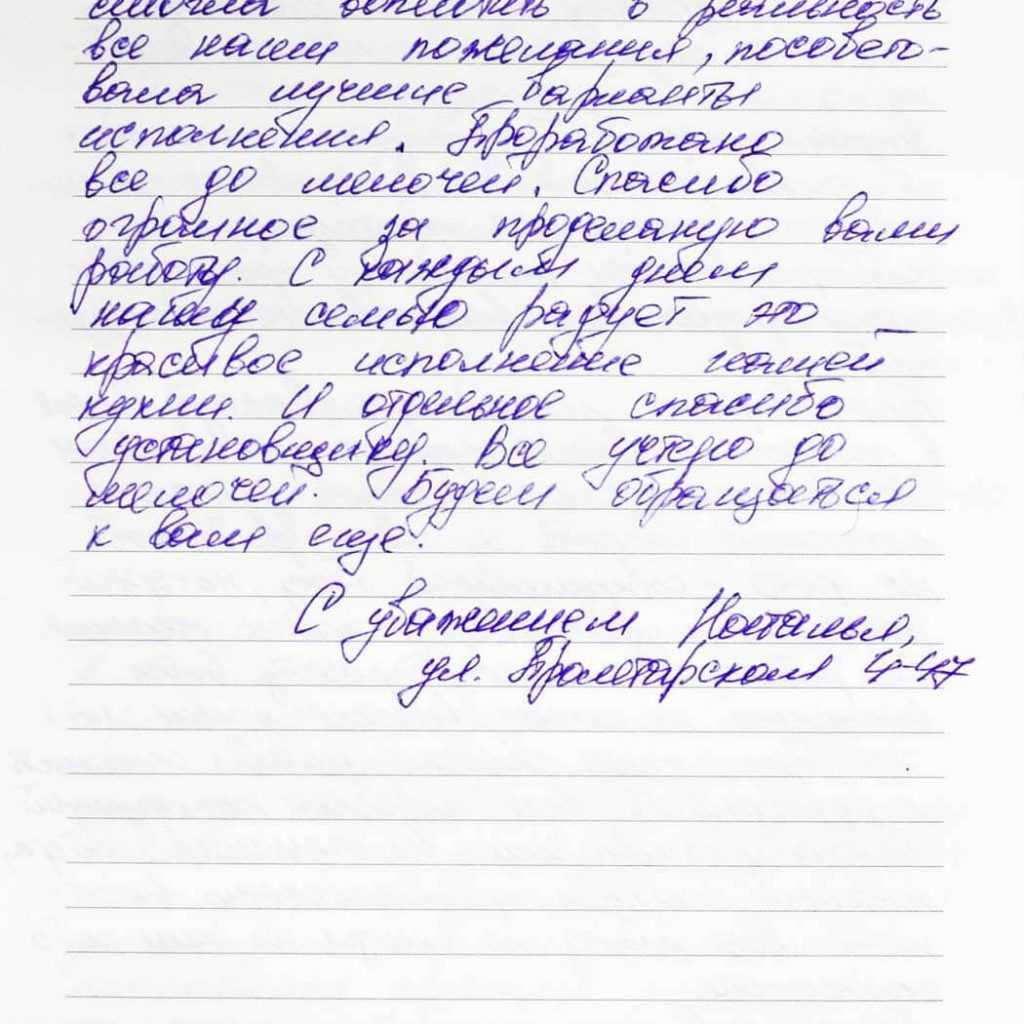 смогла воплотить в реальность
все наши пожелания, посовето-
вала лучшие варианты
исполнения. Проработано
все до мелочей. Спасибо
огромное за проделаную вами
работу. С каждым днем
нашу семью радует это
красивое исполнение нашей
кухни И отдельное спасибо
установщику. Все учтено до
мелочей. Будем обращаться
к вам еще.
С уважением Наталья,
ул. Пролетарская 4-47